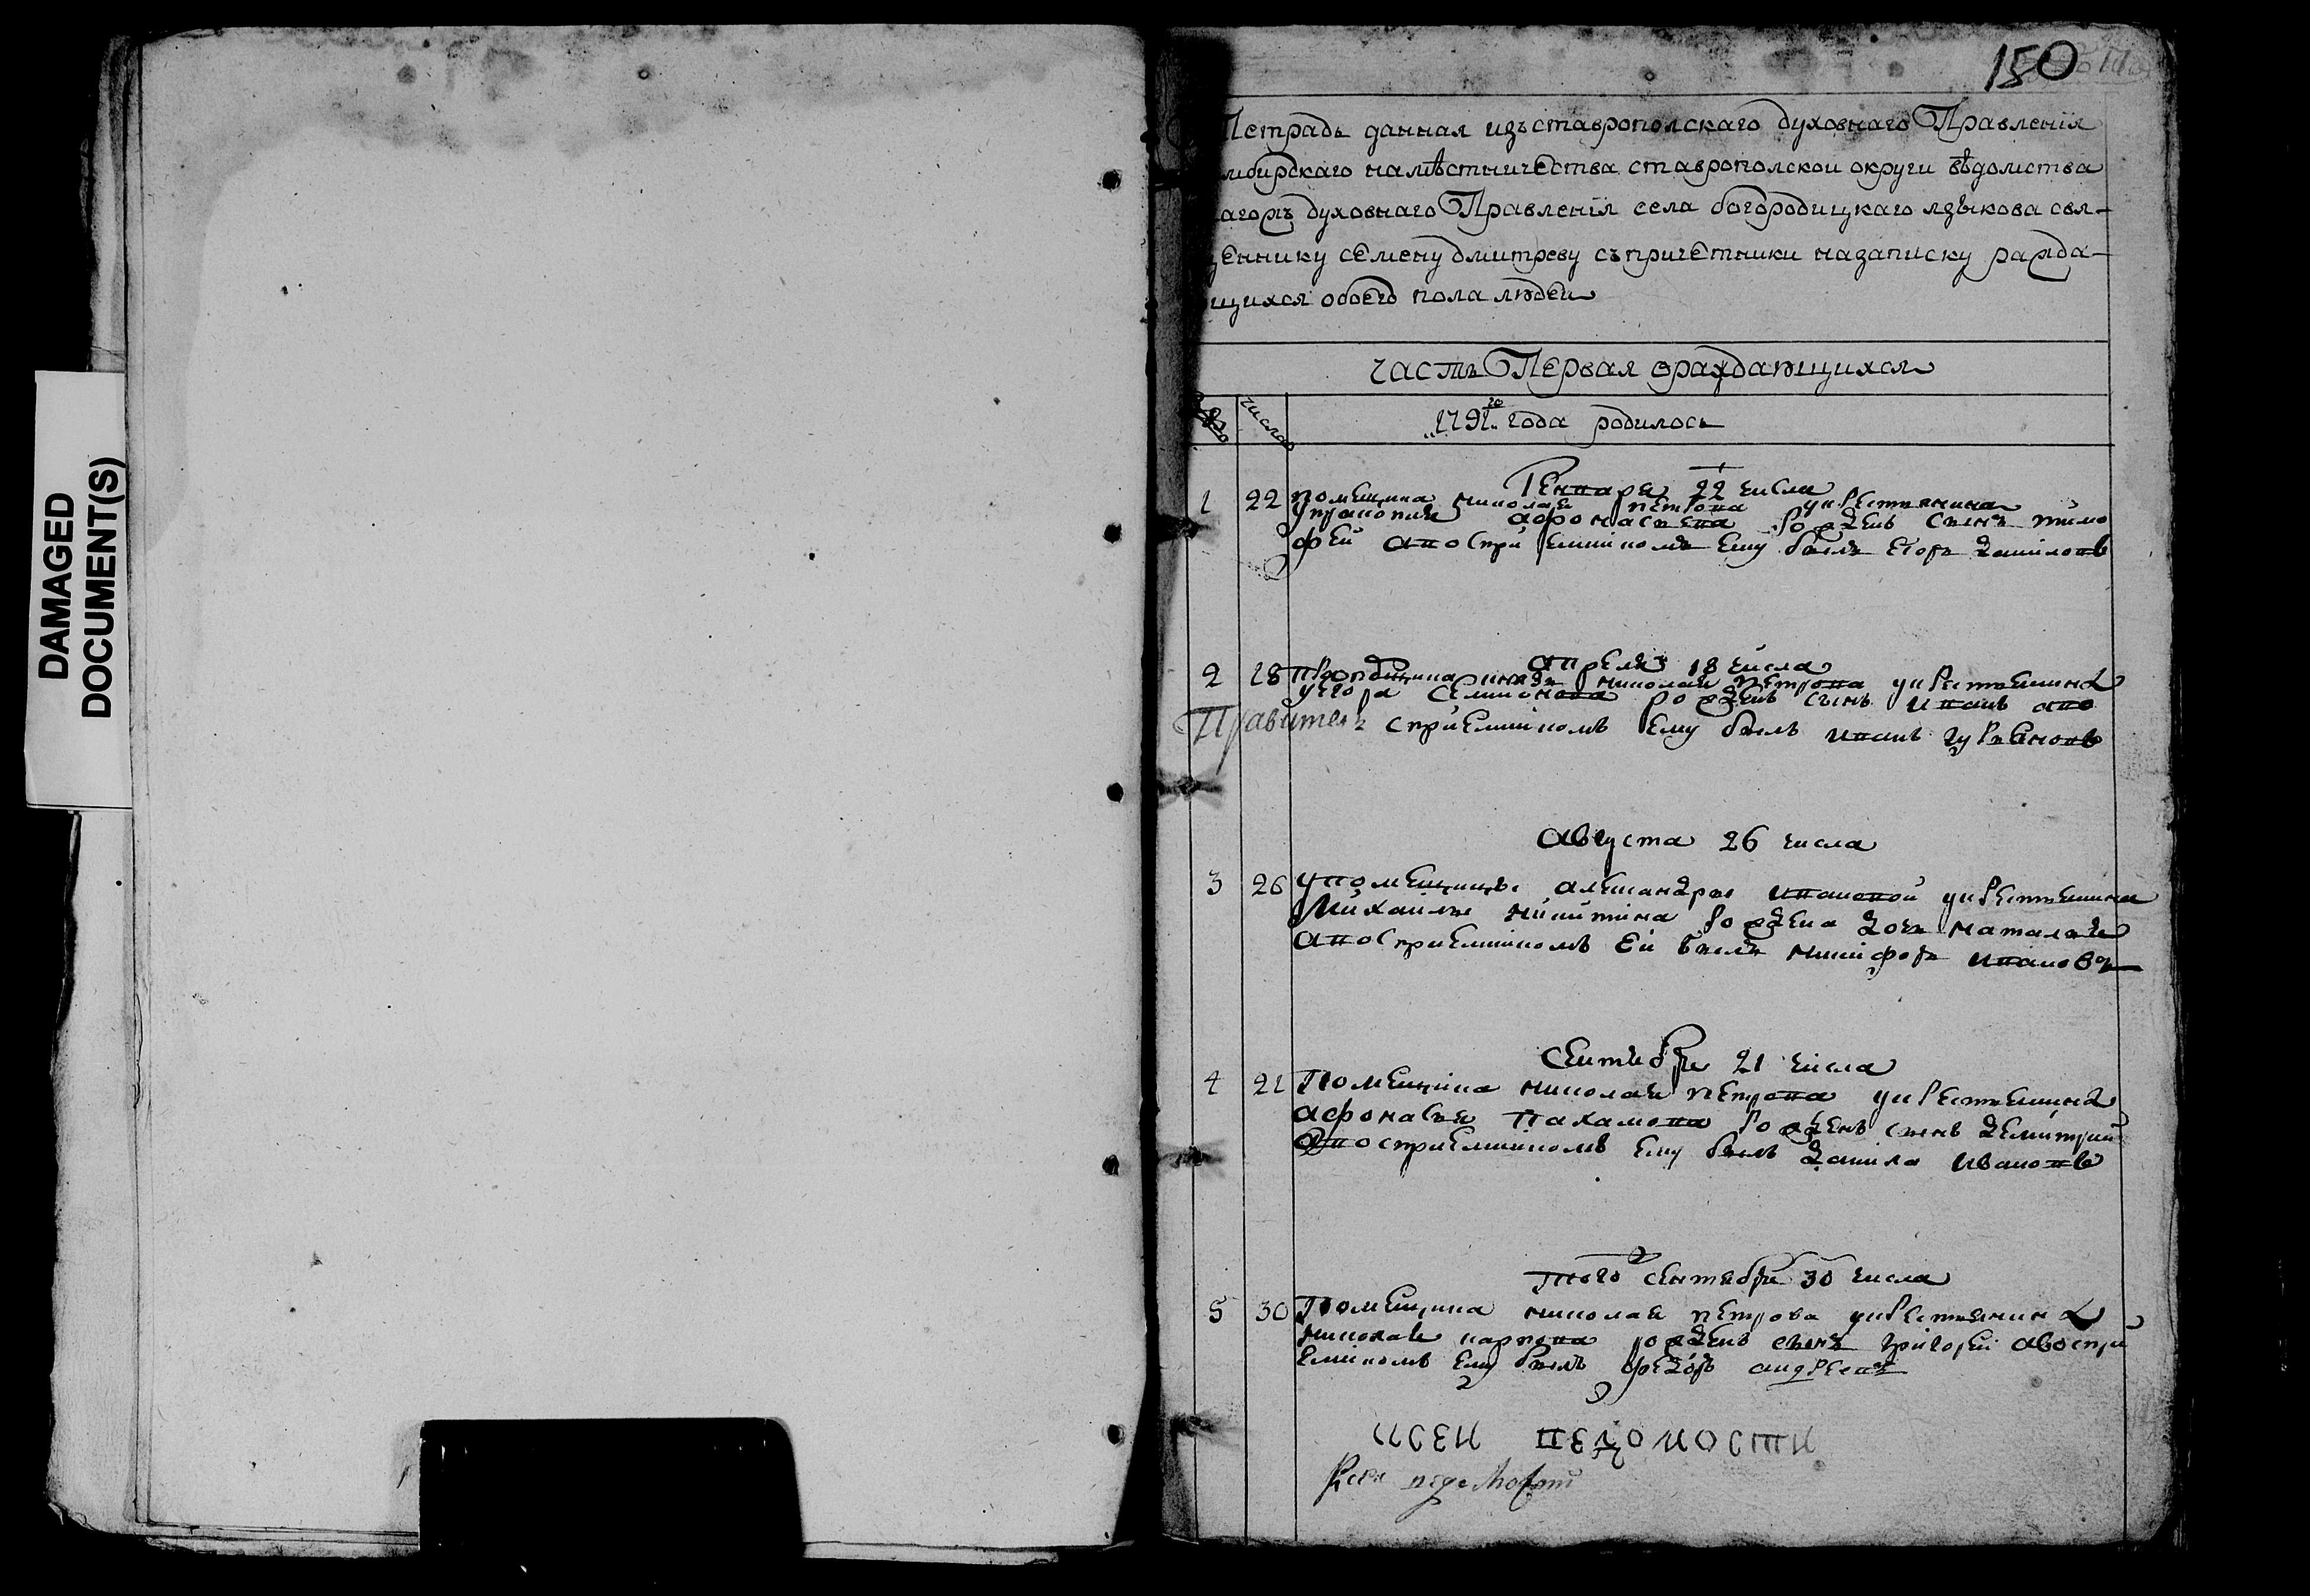 DAMAGED
DOCUMENT(S)
150
Тетрадь данная изъ ставрополскаго духовнаго Правленiя
мбирскаго намѣстничества ставрополской округи вѣдомства
духовнаго Правленiя села богородицкаго языкова свя-
щеннику семену дмитреву съ причетники на записку ражда-
ющихся обоего пола людей
часть Первая ораждающихся
число
1791 го года родилось
Генваря 22 числа
1 22 помещика николая петрова укрестянина
афонасьева рожденъ сынъ тимо
фей авосприемникомъ ему былъ егоръ даниловъ
апреля 18 числа
2 18 николая петрова укрестьянина
уегора семионова рожденъ сынъ иванъ аво
Правител сприемникомъ ему былъ иванъ
августа 26 числа
3 26 упомещицы александры ивановой укрестьянина
михаилы никитина рождена дочь наталья
авосприемникомъ ей былъ никифоръ ивановъ
сентебря 21 числа
4 21 Помещика николая петрова укрестьянина
афонасья пахамова рожденъ сынъ демитрий
авосприемникомъ ему былъ данила ивановъ
того сентября 30 числа
5 30 Помещика николая петрова укрестянина
николая карпова рожденъ сынъ григорей авоспри
емникомъ ему былъ федоръ андреевъ